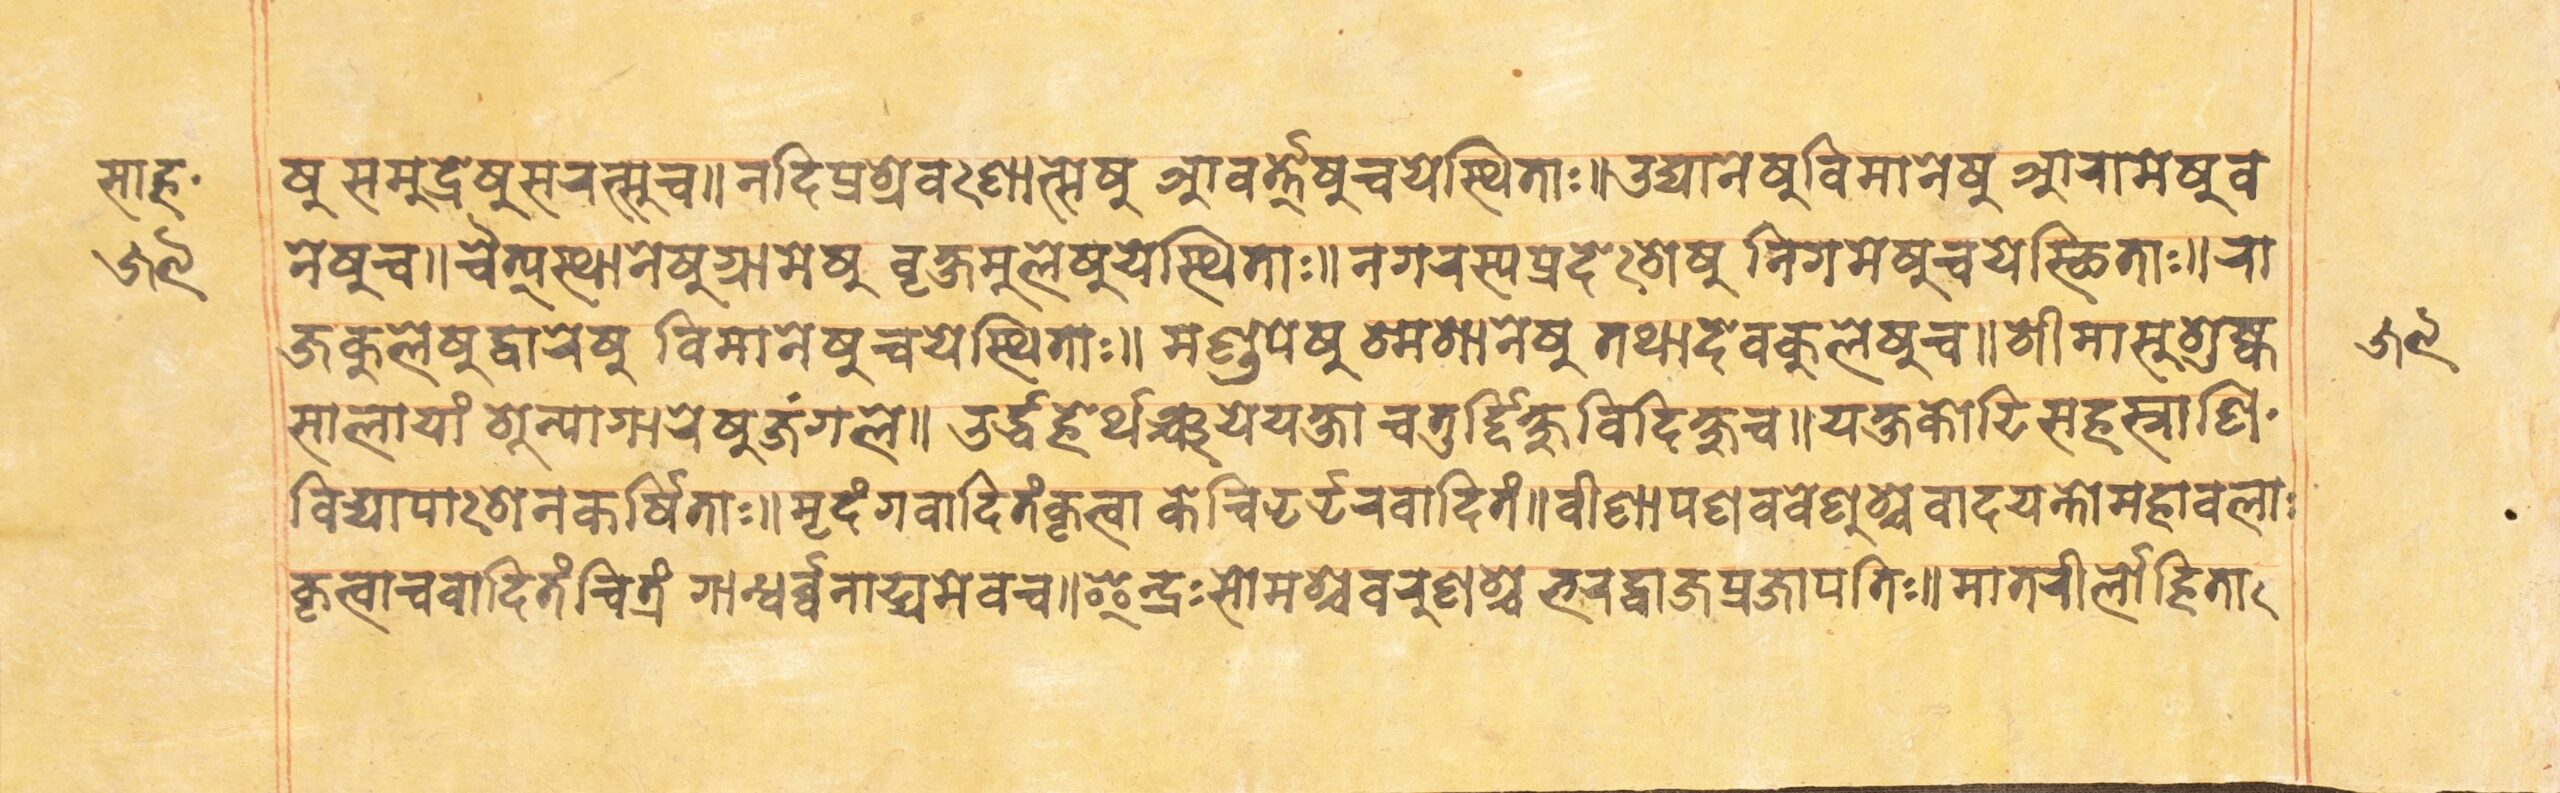 साह॰
षु समुद्रेषुसरत्सुच॥ नदिप्रश्रेवःणात्सेषु आवर्त्तेषुचयेस्थिताः॥ उद्यानेषुविमानेषु आरामेषुव
७९ नेषुच॥ चैत्यस्थानेषुग्रामेषु वृक्षमुलेषुयेस्थिताः॥ नगरस्यप्रदेःशेषु निगमेषुचयेस्छिताः॥ रा
जकुलेषुद्वारेषु विमानेषुचयेस्थिताः॥ मण्डपेषु श्मशानेषु तथादेवकुलेषुच॥ शीमासुशुष्क ७९
सालायां शून्यागारेषुजंगले॥ उर्द्ध्वहेर्थञ्चयेयक्षा चतुर्द्दिक्षुविदिक्षुच॥ यक्षकोटिसहस्त्राणि॰
विद्यापाःशेनकर्षिताः॥ मृदंगवादितंकृत्वा केचि र्रवादितं॥ वीणापणववेणुश्च वादयन्तोमहावलाः
कृत्वाचवादितंचित्रं गान्धर्व्वनाट्यमेवच॥ इन्द्रःसोमश्चवरुणश्च भरद्वाजप्रजापतिः॥ मातरीर्लोहिताः